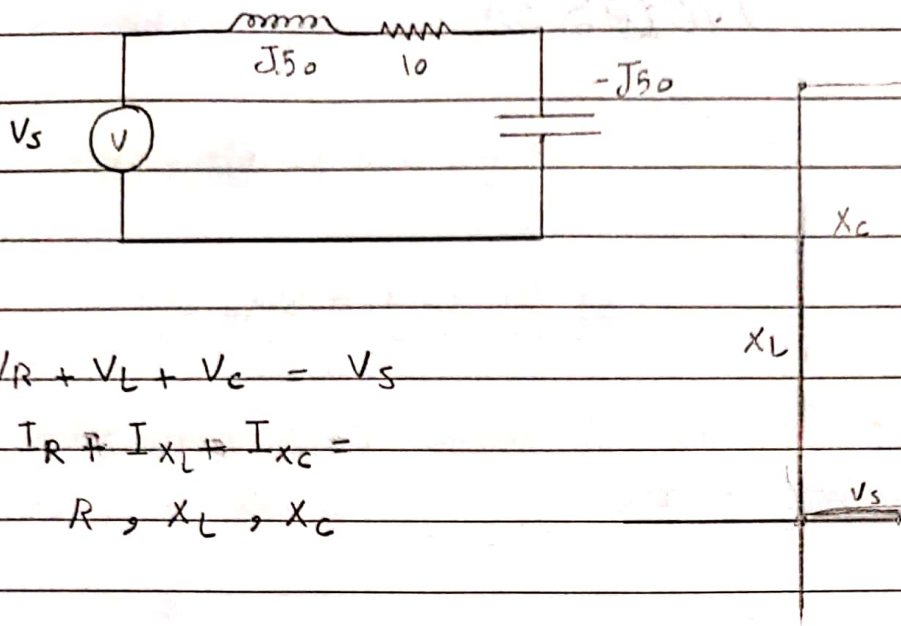 J50
10
-J50
Vs
V
Xc
XL
VR + VL + Vc = Vs
IR + IXL + IXc =
R, XL, Xc
Vs